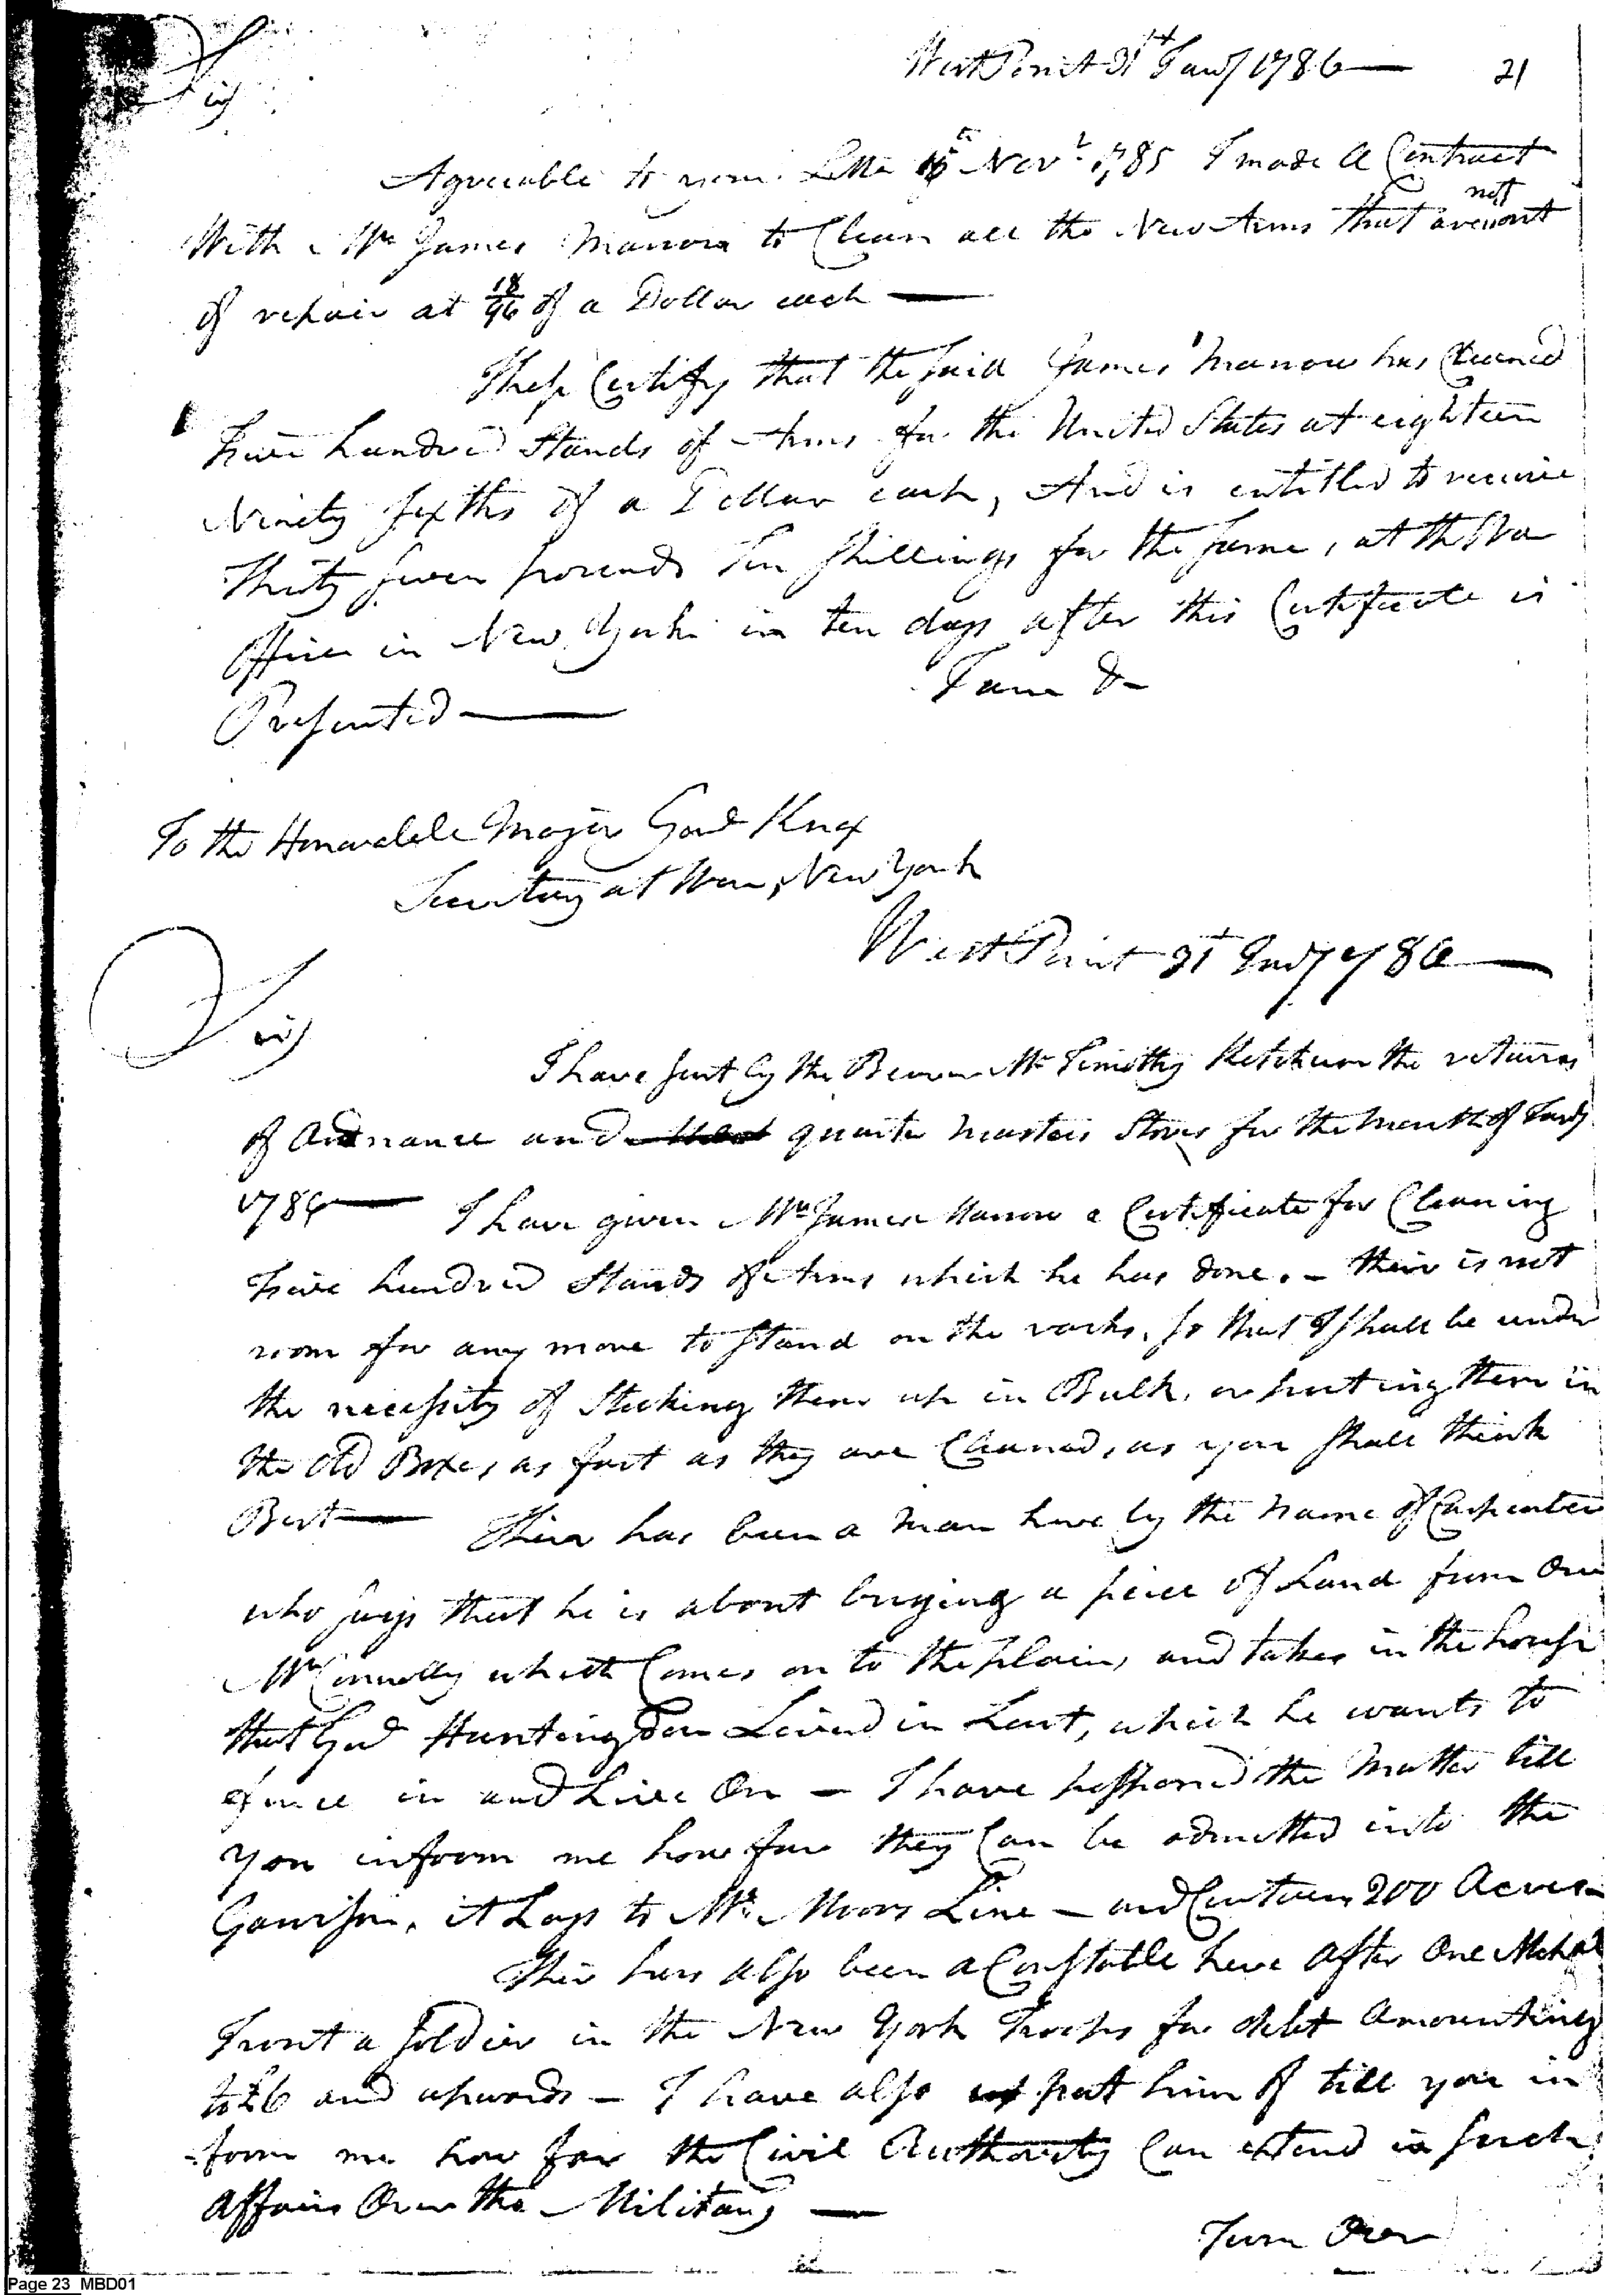 West Point 31st Jany 1786 — 21
Sir
Agreeable to your Letter Novr 1785 I made a Contract
With Mr James Marrow to Clean all the New Arms that are not out
of repair at 18/96 of a Dollar each —
These Certify that the said James Marrow has Cleaned
five hundred Stands of Arms for the United States at eighteen
Ninety sixths of a Dollar each, And is entitled to receive
Thirty seven pounds Ten Shillings for the same, at the War
Office in New York in ten days after this Certificate is
Presented —
I am &
To the Honarable Major Genl Knox
Secretary at War, New York
West Point 31st Jany 1786 —
Sir
I have sent by the Bearer Mr Timothy Ketchum the returns
of Ordnance and quarter masters Stores for the month of Jany
1786 — I have given Mr James Marrow a Certificate for Cleaning
five hundred Stands of Arms which he has done. - their is not
room for any more to stand on the racks, so that I shall be under
the necessity of Stacking them up in Bulk, or puting them in
the old Boxes, as fast as they are Cleaned, as you shall think
Best — Their has been a man here by the name of Carpenter
who says that he is about buying a peice of Land from One
Mr Connolly which Comes on to the plain, and takes in the house
that Genl Huntingdon Lived in Last, which he wants to
fence in and Live On — I have postponed the Matter till
you inform me how far they Can be admitted into the
Garrison, it Lays to Mr Moors Line — and Contains 200 Acres —
Their has also been a Constable here after One Michal
Tront a soldier in the New York Troops for debt Amounting
to £6 and upwards — I have also put him of till you in
-form me how far the Civil Authority Can extend in such
affairs Over the Military —
Turn Over
Page 23 MBD01